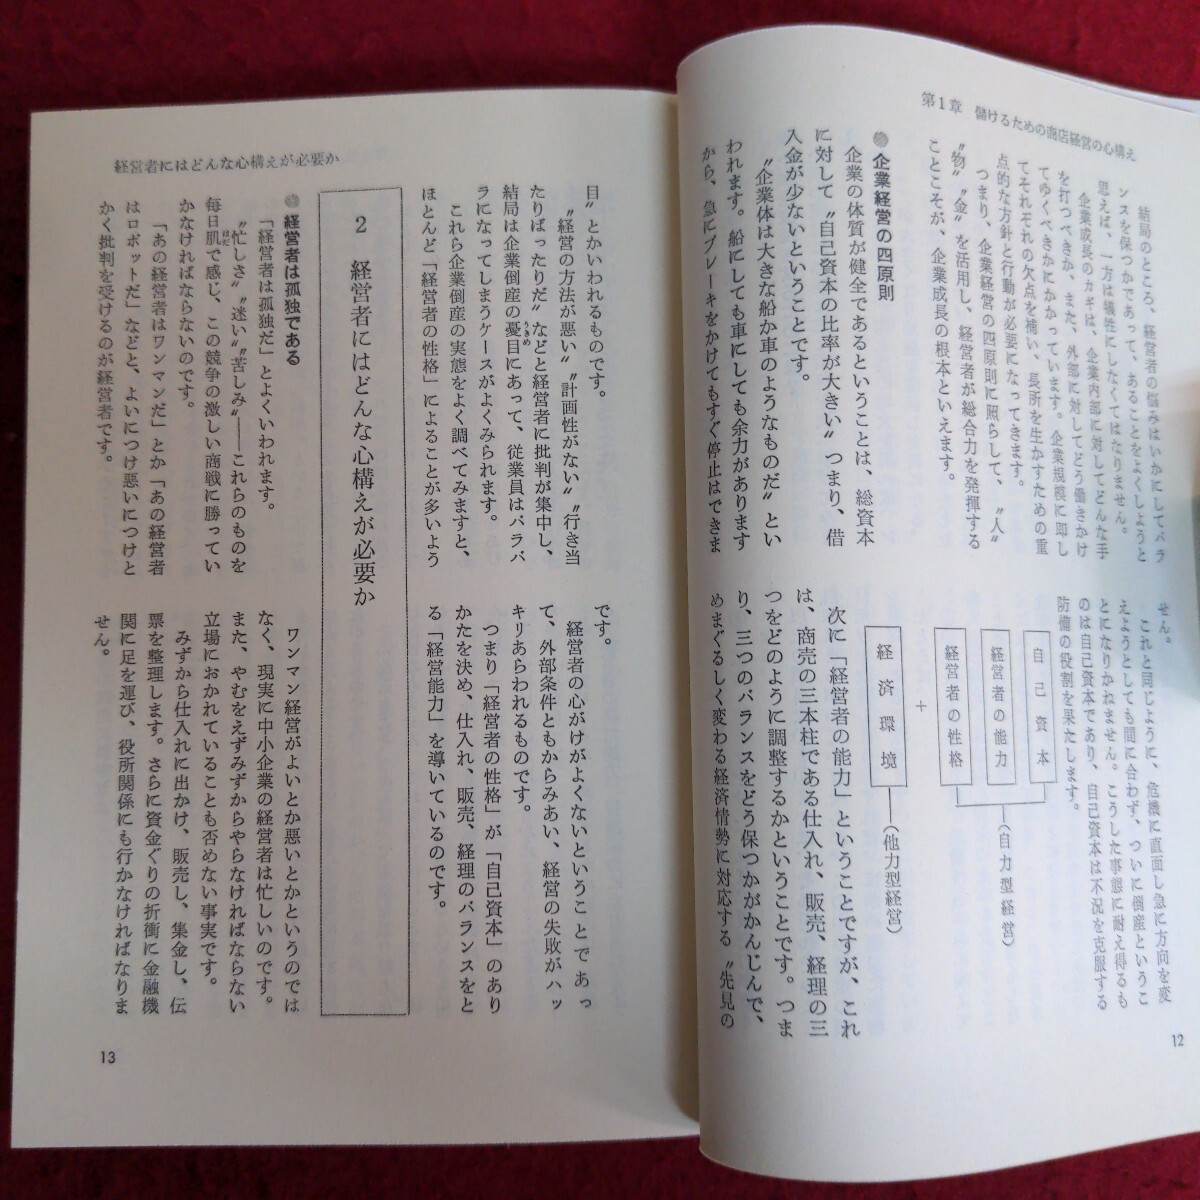 第1章　儲けるための商店経営の心構え
結局のところ、経営者の悩みはいかにしてバラ
ンスを保つかであって、あることをよくしようと
思えば、一方は犠牲にしなくてはなりません。
企業成長のカギは、企業内部に対してどんな手
を打つべきか、また、外部に対してどう働きかけ
てゆくべきかにかかっています。企業規模に即し
てそれぞれの欠点を補い、長所を生かすための重
点的な方針と行動が必要になってきます。
つまり、企業経営の四原則に照らして、〝人〟
〝物〟〝金〟を活用し、経営者が総合力を発揮する
ことこそが、企業成長の根本といえます。
企業経営の四原則
企業の体質が健全であるということは、総資本
に対して〝自己資本の比率が大きい〟つまり、借
入金が少ないということです。
〝企業体は大きな船か車のようなものだ〟とい
われます。船にしても車にしても余力があります
から、急にブレーキをかけてもすぐ停止はできま
せん。
これと同じように、危機に直面し急に方向を変
えようとしても間に合わず、ついに倒産というこ
とになりかねません。こうした事態に耐え得るも
のは自己資本であり、自己資本は不況を克服する
防備の役割を果たします。
自己資本
経営者の能力
経営者の性格
(自力型経営)
+
経済環境
(他力型経営)
次に「経営者の能力」ということですが、これ
は、商売の三本柱である仕入れ、販売、経理の三
つをどのように調整するかということです。つま
り、三つのバランスをどう保つかがかんじんで、
めまぐるしく変わる経済情勢に対応する〝先見の
12
経営者にはどんな心構えが必要か
目〟とかいわれるものです。
〝経営の方法が悪い〟〝計画性がない〟〝行き当
たりばったりだ〟などと経営者に批判が集中し、
結局は企業倒産の憂目にあって、従業員はバラバ
うきめ
ラになってしまうケースがよくみられます。
これら企業倒産の実態をよく調べてみますと、
ほとんど「経営者の性格」によることが多いよう
です。
経営者の心がけがよくないということであっ
て、外部条件ともからみあい、経営の失敗がハッ
キリあらわれるものです。
つまり「経営者の性格」が「自己資本」のあり
かたを決め、仕入れ、販売、経理のバランスをと
る「経営能力」を導いているのです。
2　経営者にはどんな心構えが必要か
経営者は孤独である
「経営者は孤独だ」とよくいわれます。
〝忙しさ〟〝迷い〟〝苦しみ〟――これらのものを
毎日肌で感じ、この競争の激しい商戦に勝ってい
はだ
かなければならないのです。
「あの経営者はワンマンだ」とか「あの経営者
はロボットだ」などと、よいにつけ悪いにつけと
かく批判を受けるのが経営者です。
ワンマン経営がよいとか悪いとかというのでは
なく、現実に中小企業の経営者は忙しいのです。
また、やむをえずみずからやらなければならない
立場におかれていることも否めない事実です。
みずから仕入れに出かけ、販売し、集金し、伝
票を整理します。さらに資金ぐりの折衝に金融機
関に足を運び、役所関係にも行かなければなりま
せん。
13